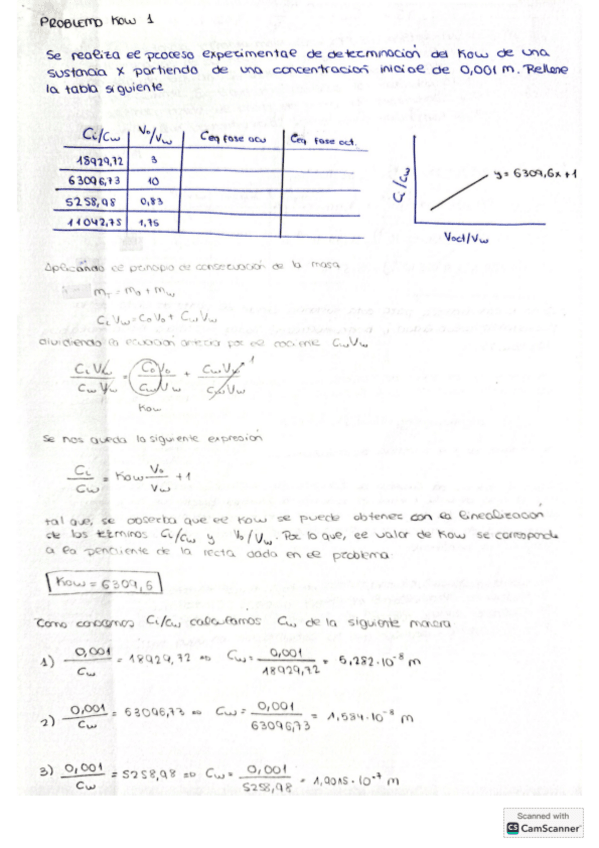 PROBLEMA KOW 1
Se realiza el proceso experimental de determinación del Kow de una
sustancia X partiendo de una concentración inicial de 0,001 m. Rellene
la tabla siguiente
Ci/Cw Vo/Vw Ceq fase acu Ceq fase oct.
18929,72 3
63096,73 10
5258,98 0,83
11042,75 1,75
Ci/Cw
y = 6309,6x+1
Voct/Vw
Aplicando el principio de conservación de la masa
mT = mo + mw
CiVw = CoVo + CwVw
dividiendo la ecuación anterior por el cociente CwVw
CiVw/CwVw = CoVo/CwVw + CwVw/CwVw 1
Kow
Se nos queda la siguiente expresión
Ci/Cw = Kow Vo/Vw + 1
tal que, se observa que el Kow se puede obtener con la linealización
de los términos Ci/Cw y Vo/Vw. Por lo que, el valor de Kow se corresponde
a la pendiente de la recta dada en el problema
Kow = 6309,6
Como conocemos Ci/Cw calculamos Cw de la siguiente manera
1) 0,001/Cw = 18929,72 => Cw = 0,001/18929,72 = 5,282·10⁻⁸ m
2) 0,001/Cw = 63096,73 => Cw = 0,001/63096,73 = 1,584·10⁻⁸ m
3) 0,001/Cw = 5258,98 => Cw = 0,001/5258,98 = 1,9015·10⁻⁷ m
Scanned with
CS CamScanner